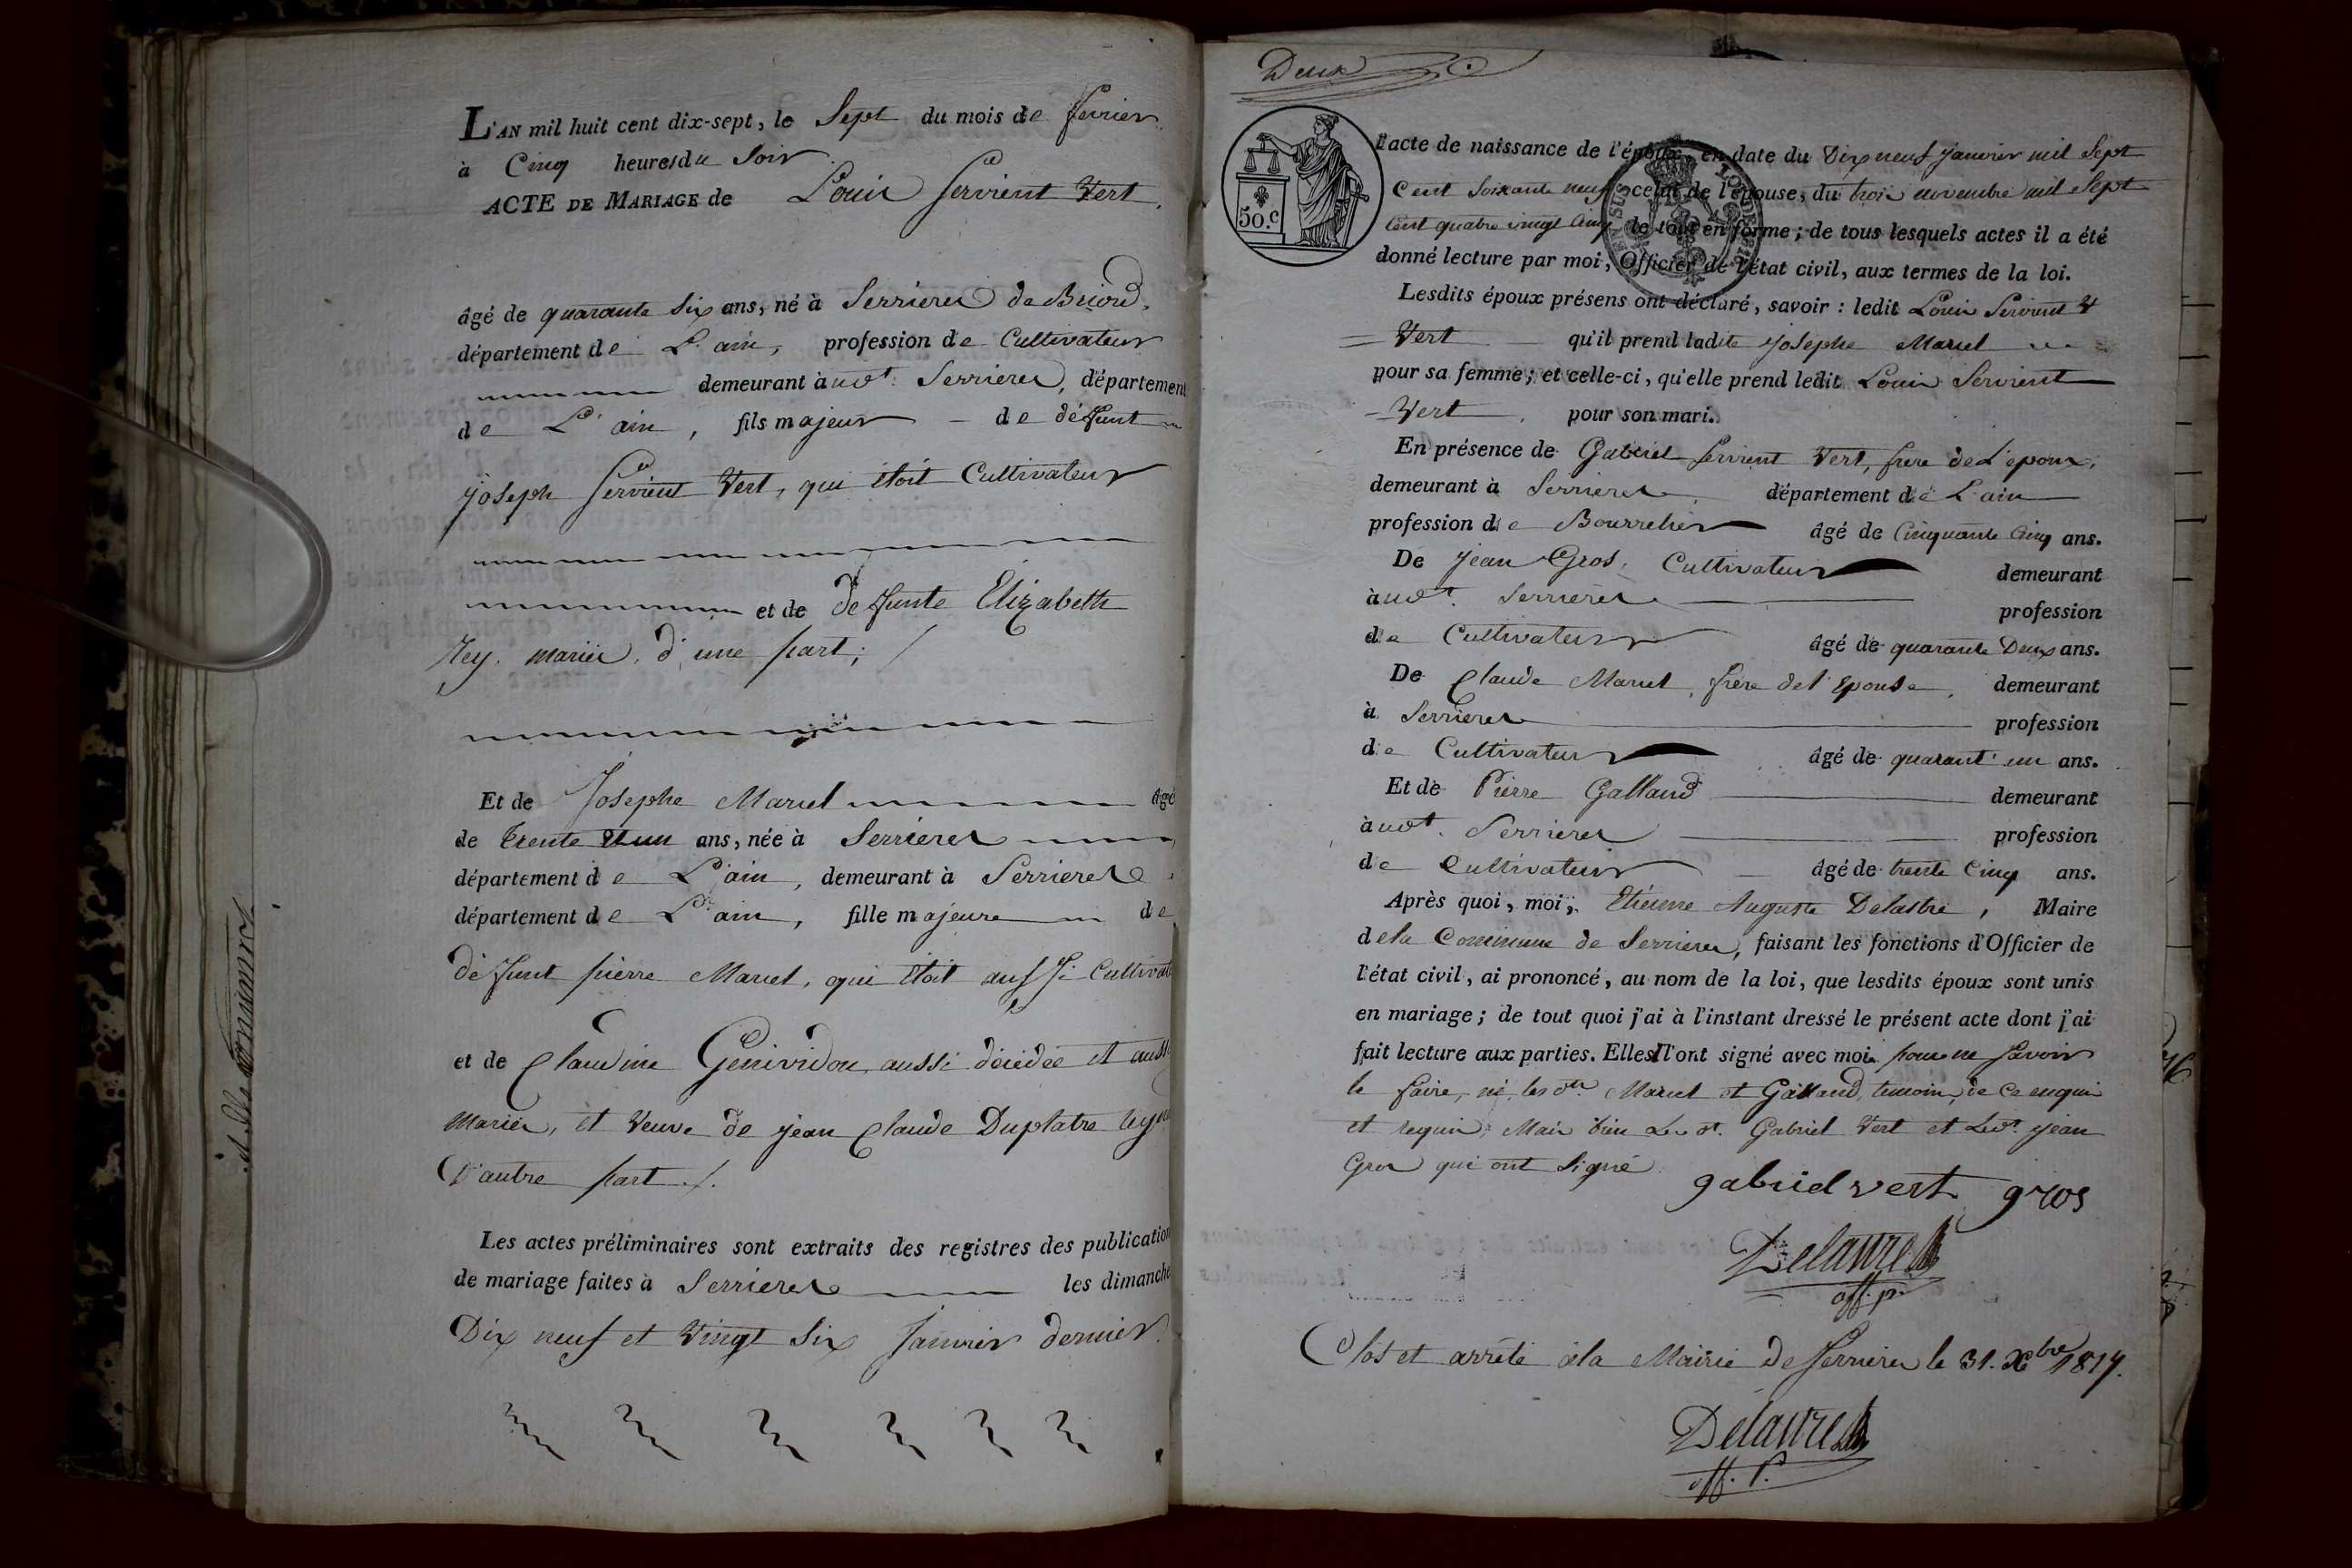 L'AN mil huit cent dix-sept, le Sept du mois de fevrier
à Cinq heures du Soir
ACTE DE MARIAGE de Louis Servient Vert.
âgé de quarante Six ans, né à Serrieres de Briord,
département de L'ain, profession de Cultivateur
demeurant à udt. Serrieres, département
de L'ain, fils majeur de défunt
joseph Servient Vert, qui étoit Cultivateur
et de defunte Elizabeth
Rey. mariés, d'une part;
Et de Josephe Maruel âgé
de trente et un ans, née à Serrieres
département de L'ain, demeurant à Serrieres
département de L'ain, fille majeure de
défunt pierre Maruel, qui étoit aussi Cultivat
et de Claudine Genividon aussi décédée et auss
mariés, et Veuve de jean Claude Duplatre
D'autre part /.
Les actes préliminaires sont extraits des registres des publication
de mariage faites à Serrieres les dimanche
Dix neuf et Vingt Six Janvier dernier.
Deux
50.c
L'acte de naissance de l'époux, en date du Dix neuf Janvier mil Sept
Cent Soixante neuf celui de l'épouse, du trois novembre mil Sept
Cent quatre vingt Cinq le tout en forme; de tous lesquels actes il a été
donné lecture par moi, Officier de l'état civil, aux termes de la loi.
Lesdits époux présens ont déclaré, savoir : ledit Louis Servient
Vert qu'il prend ladite joSephe Maruel
pour sa femme; et celle-ci, qu'elle prend ledit Louis Servient
Vert pour son mari.
En présence de Gabriel Servient Vert, frere de L'epoux,
demeurant à Serrieres département de L'ain
profession de Bourrelier âgé de Cinquante Cinq ans.
De Jean Gros, Cultivateur demeurant
à udt. Serrieres profession
de Cultivateur âgé de quarante Deux ans.
De Claude Maruel, frere de l'Epouse, demeurant
à Serrieres profession
de Cultivateur âgé de quarant' un ans.
Et de Pierre Galland demeurant
à udt. Serrieres profession
de Cultivateur âgé de trente Cinq ans.
Après quoi, moi, Etienne Auguste Delastre, Maire
de la Commune de Serrieres, faisant les fonctions d'Officier de
l'état civil, ai prononcé, au nom de la loi, que lesdits époux sont unis
en mariage; de tout quoi j'ai à l'instant dressé le présent acte dont j'ai
fait lecture aux parties. Elles l'ont signé avec moi pour ne Savoir
le faire, ni les dts. Maruel et Galland, temoins, de ce enquis
et requis; Mais bien Le dt. Gabriel Vert et Le dt. jean
Gros qui ont Signé
gabriel vert gros
off. p.
Clos et arrêté à la Mairie de Serrieres le 31. Xbre 1817.
off. P.